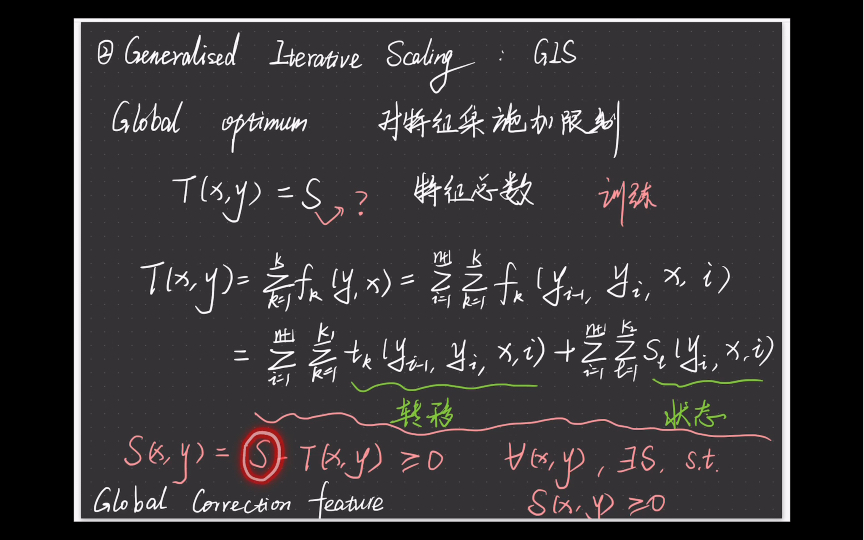 ② Generalised Iterative Scaling : GIS
Global optimum 对特征集施加限制
T(x,y) = S ? 特征总数 训练
T(x,y) = ∑_{k=1}^{k} f_k (y,x) = ∑_{i=1}^{n+1} ∑_{k=1}^{k} f_k (y_{i-1}, y_i, x, i)
= ∑_{i=1}^{n+1} ∑_{k=1}^{k_1} t_k (y_{i-1}, y_i, x, i) + ∑_{i=1}^{n+1} ∑_{l=1}^{k_2} S_l (y_i, x, i)
转移 状态
S(x,y) = S - T(x,y) ≥ 0 ∀(x,y), ∃S, s.t.
Global Correction feature S(x,y) ≥ 0